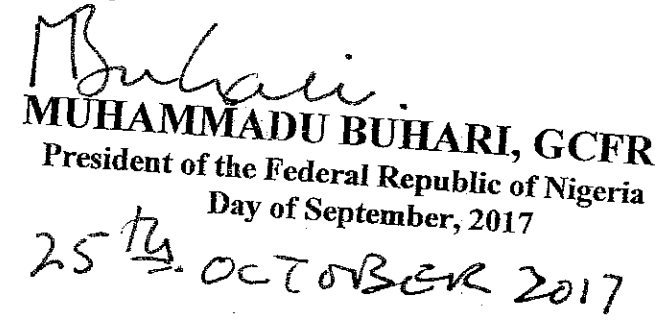 MBuhari.
MUHAMMADU BUHARI, GCFR
President of the Federal Republic of Nigeria
Day of September, 2017
25th. OCTOBER 2017